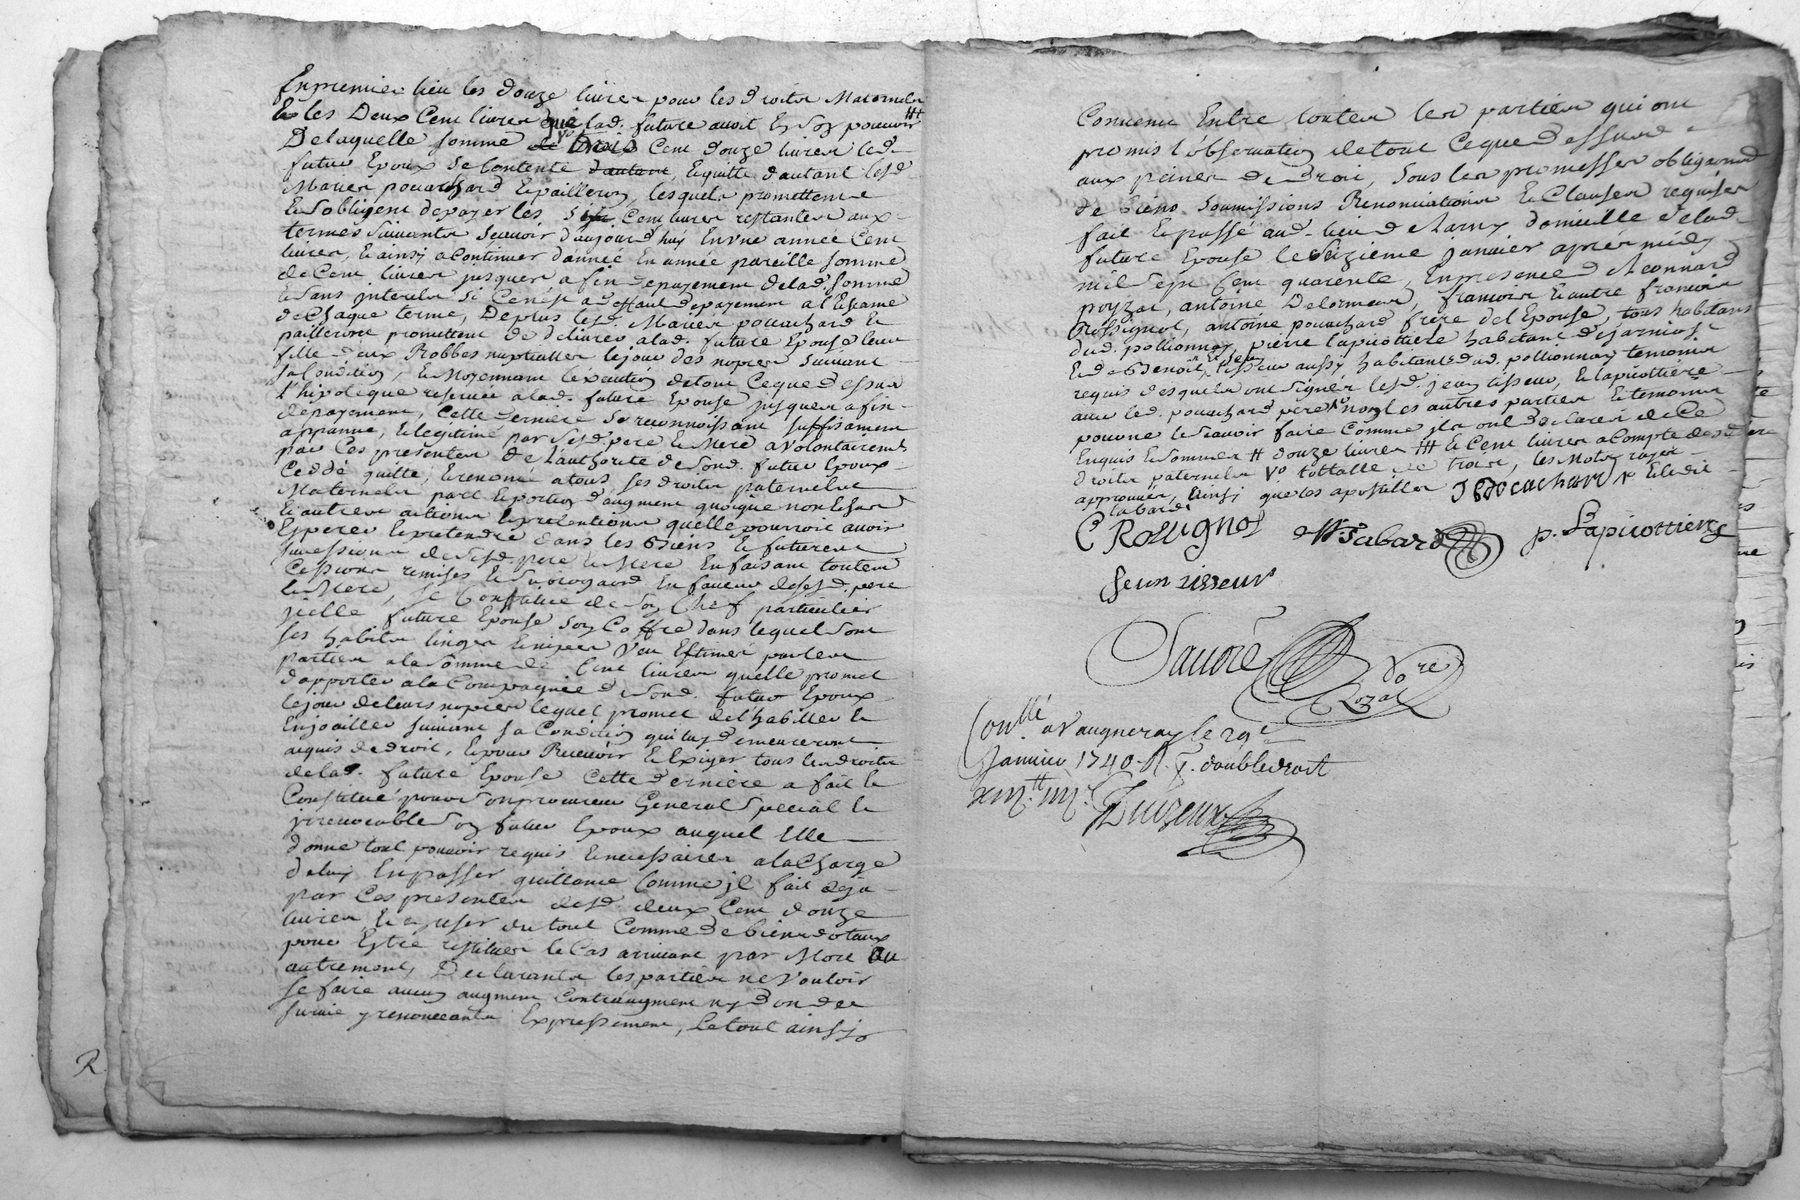 En premier lieu les douze livres pour les droits Maternels
et les Deux Cent livres que lad. future avoit En Son pouvoir
De laquelle Somme de trois Cent douze livres led.
futur Epoux Se Contente d'autant, Et quitte d'autant lesd.
Mariés pouachard Et pailleron, lesquels promettent
Et S'obligent de payer les Six Cent livres restantes aux
termes Suivants Scavoir d'aujourd'huy En Une année Cent
livres, Et ainsy a Continuer d'année En année pareille Somme
de Cent livres jusques a fin de payement de lad. Somme
Sans interets Si Cen'est a deffaut de payement a l'Echance
de Chaque terme, De plus lesd. Mariés pouachard Et
pailleron promettent de délivrer a lad. future Epouse leur
fille deux Robbes nuptialles le jour des nopces Suivant
Sa Condition, Et Moyennant l'éxécution de tout Ceque dessus
l'hipoteque reservée a lad. future Epouse jusques a fin
de payement, Cette derniere Se reconnoissant Suffisament
appannée, Et légitimé par Sesd. pere Et Mere a Volontairement
par Ces presentes de L'authorité de Sond. futur Epoux
Ceddé quitté, Et renoncé a tous Ses droits paternels
Maternels part Et portion d'augment quoique non Echus
Et autres actions Et pretentions quelle pourroit avoir
Esperer Et pretendre dans les Biens Et futures
Successions de Sesd. pere Et Mere En faisant toutes
Cessions remises Et Subrogations En faveur de Sesd. pere
Et Mere, Se Constitue de Son Chef particulier
jcelle future Epouse Son Coffre dans lequel Sont
Ses habits linges Et nipes Veu Estimés par les
parties a la Somme de Cent livres quelle promet
d'apporter a la Compagnie de Sond. futur Epoux
le jour de leurs nopces lequel promet de l'habiller Et
Enjoailler Suivant Sa Condition qui luy demeureront
acquis de droit, Et pour Recevoir Et Exiger tous les droits
de lad. future Epouse Cette derniere a fait Et
Constitué pour Son procureur General Special Et
jrrevocable Son futur Epoux auquel Elle
donne tout pouvoir requis Et necessaires a la Charge
d'en passer quittance Comme jl fait deja
par Ces presentes desd. deux Cent douze
livres, Et d'user du tout Comme de biens dotaux
pour Estre restitués le Cas arrivant par Mort ou
autrement, Declarants les parties ne Vouloir
Se faire aucun augment Contraugment ny don de
Survie y renonceants Expressement, Le tout ainsy
Convenu Entre toutes les parties qui ont
promis l'observation de tout Ceque dessus
aux peines de Droit, Sous les promesses obligations
de Biens Soumissions Renonciations Et Clauses requises
fait Et passé aud. lieu de Larny domicille de lad.
future Epouse le Sizieme janvier apres midy
mil Sept Cent quarente, En presence de Leonnard
poyzat, antoine Delorme, françois Et autre françois
Rossignol, antoine pouachard frere de l'Epouse, tous habitans
dud. pollionnay, pierre Lapicottiere habitant de jarniost
Et de Benoît Tisseur aussy habitant dud. pollionnay temoins
requis desquels ont Signer lesd. jean tisseur, Et lapicottiere
avec led. pouachard pere non les autres parties Et temoins
pour ne le Scavoir faire Comme jls ont declarer de Ce
Enquis Et Sommés # douze livres ### Et Cent livres a Compte desd.
droits paternels Vo tottalle de trois, les Mots rayés
approuvés, Ainsi que les apostilles J Pouachard Et ledit
labard
C Rossignol M. Labard p. Lapicottiere
Jean tisseur
Savoré Nore
Royal
Conllé a Vaugneray le 29e
Janvier 1740. R. g. double droit